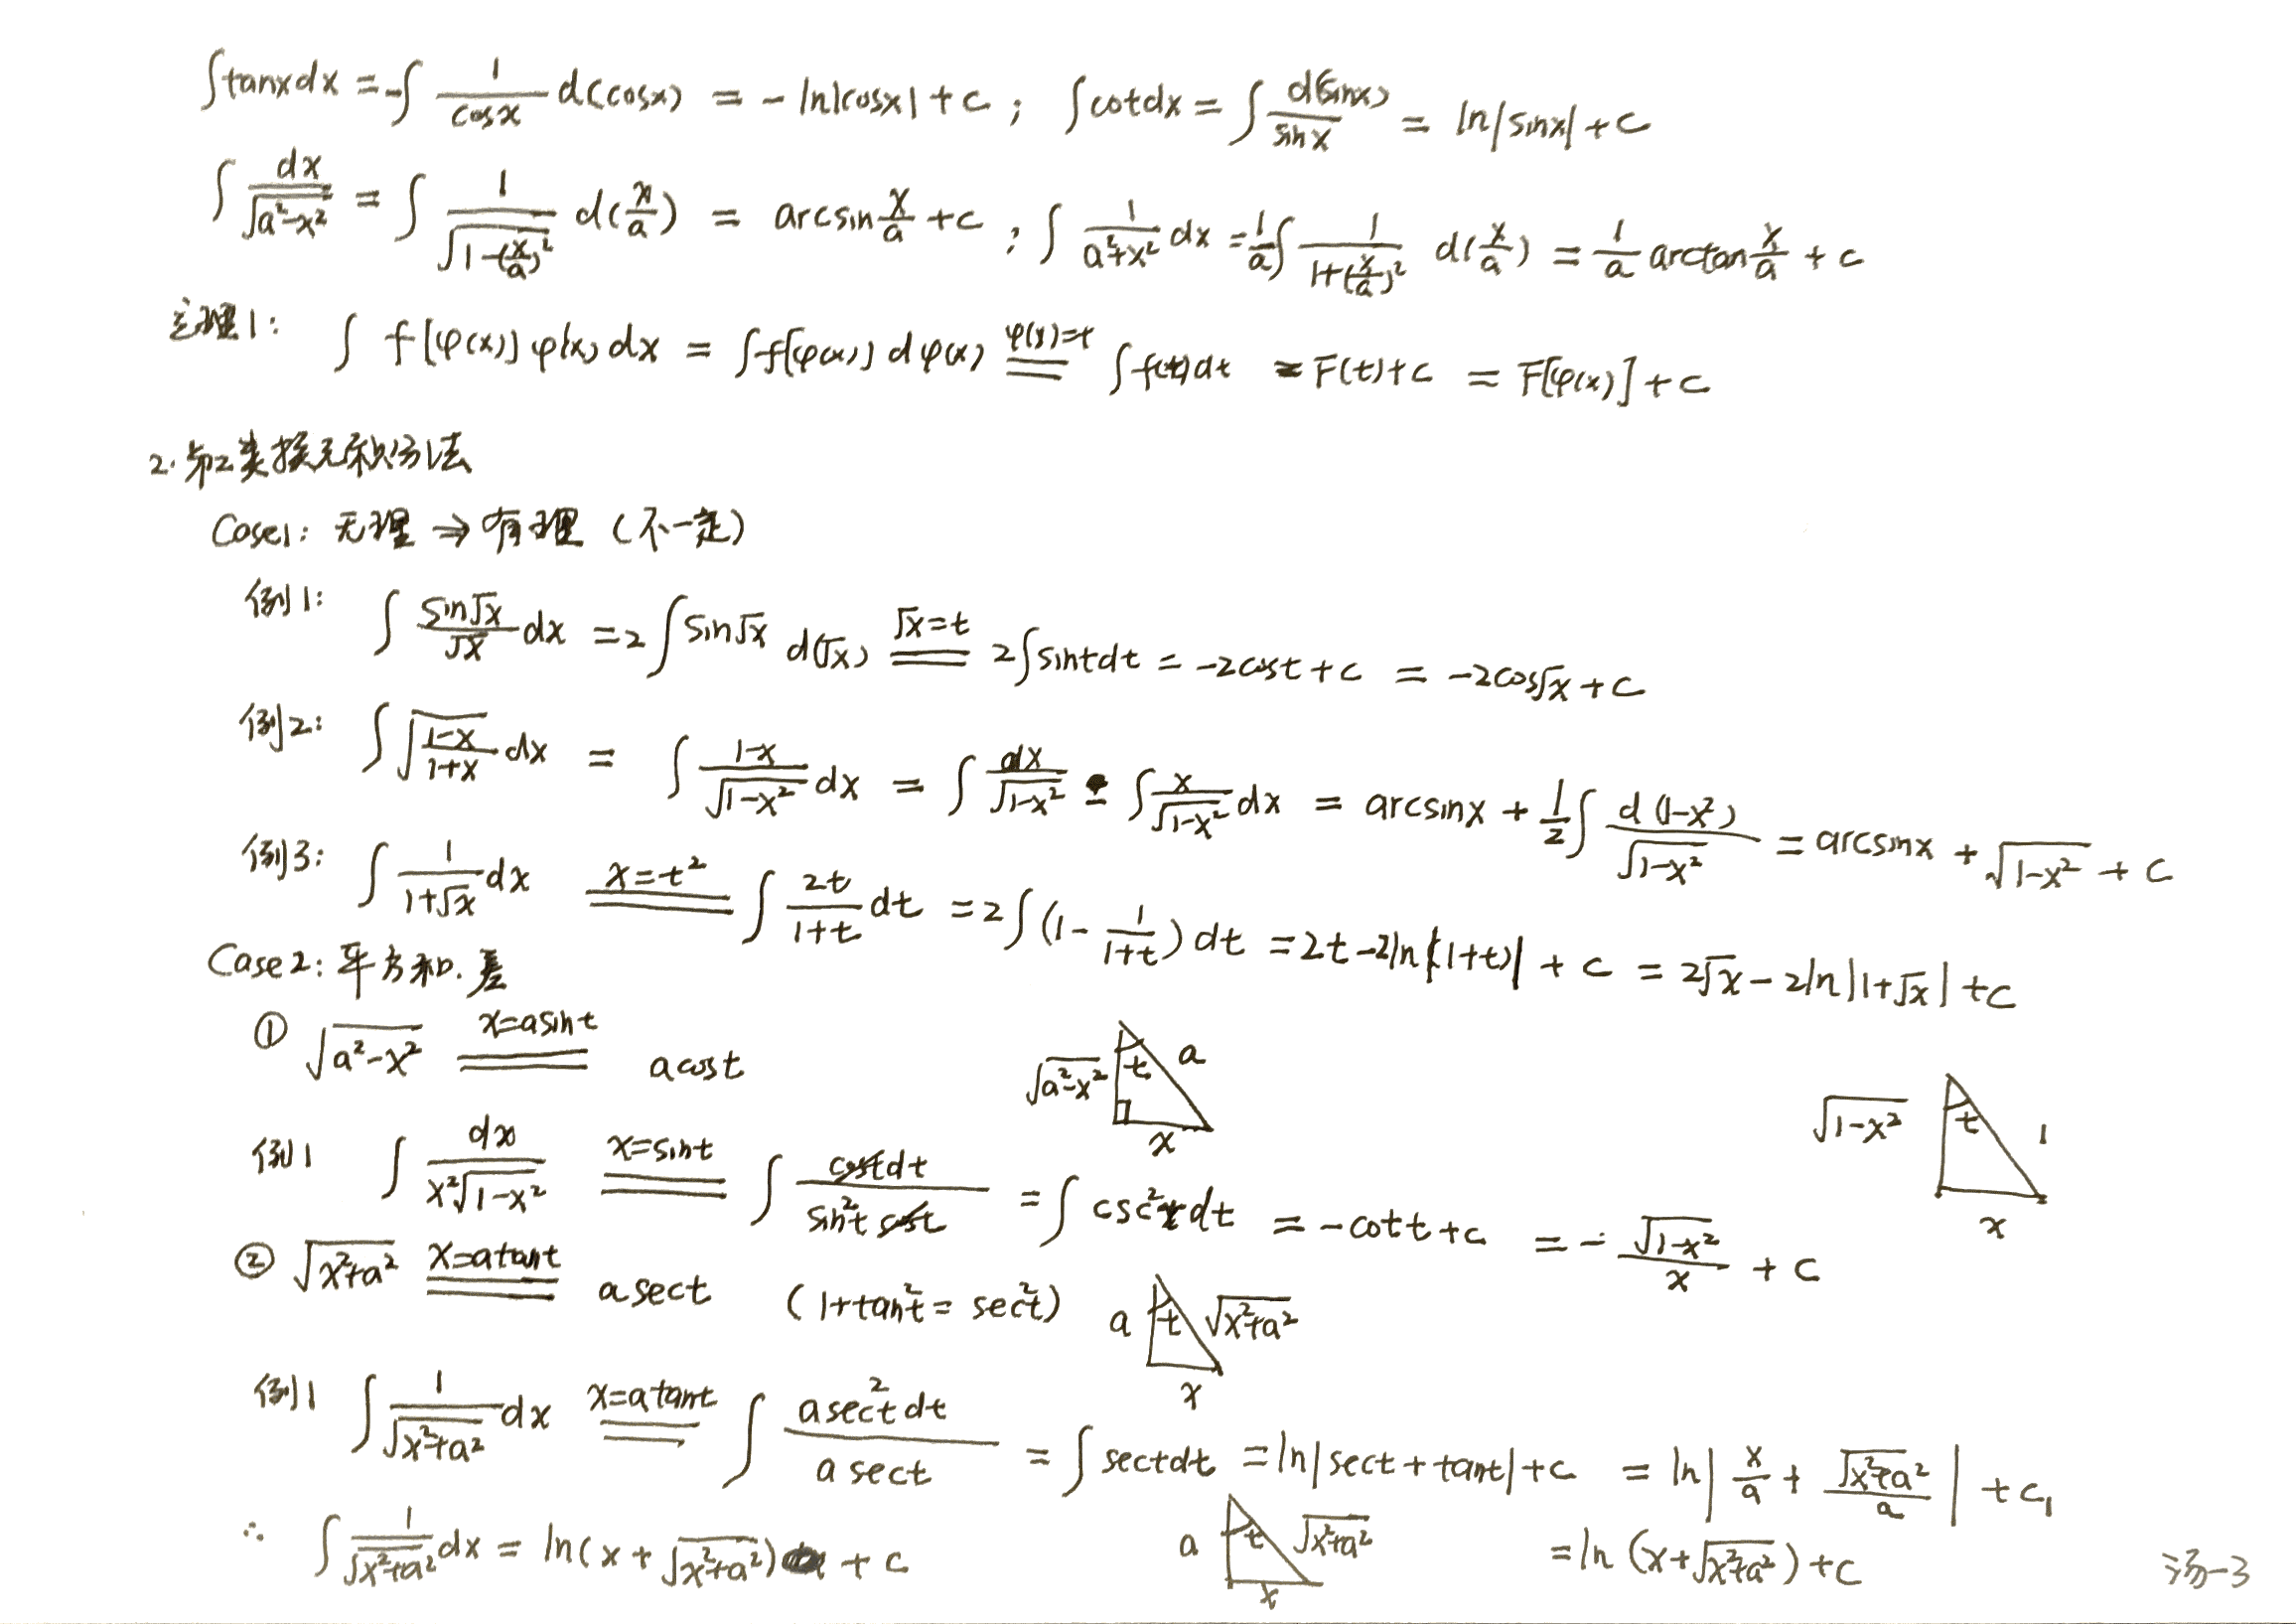 ∫tanxdx = -∫ 1/cosx d(cosx) = -ln|cosx| + c ; ∫cotdx = ∫ d(sinx)/sinx = ln|sinx| + c
∫ dx/√(a²-x²) = ∫ 1/√(1-(x/a)²) d(x/a) = arcsin x/a + c ; ∫ 1/(a²+x²) dx = 1/a ∫ 1/(1+(x/a)²) d(x/a) = 1/a arctan x/a + c
定理1: ∫ f[φ(x)] φ'(x) dx = ∫f[φ(x)] dφ(x) ══(φ(x)=t) ∫f(t)dt = F(t)+c = F[φ(x)] + c
2. 第2类换元积分法
Case1: 无理 ⇒ 有理 (不一定)
例1: ∫ sin√x/√x dx = 2∫sin√x d(√x) ══(√x=t) 2∫sintdt = -2cost + c = -2cos√x + c
例2: ∫ √((1-x)/(1+x)) dx = ∫ (1-x)/√(1-x²) dx = ∫ dx/√(1-x²) - ∫ x/√(1-x²) dx = arcsinx + 1/2 ∫ d(1-x²)/√(1-x²) = arcsinx + √(1-x²) + c
例3: ∫ 1/(1+√x) dx ══(x=t²) ∫ 2t/(1+t) dt = 2∫(1 - 1/(1+t)) dt = 2t - 2ln|1+t| + c = 2√x - 2ln|1+√x| + c
Case2: 平方和.差
① √(a²-x²) ══(x=asint) acost
√(a²-x²) t a x
例1 ∫ dx/(x²√(1-x²)) ══(x=sint) ∫ costdt/(sin²t cost) = ∫csc²tdt = -cott + c = -√(1-x²)/x + c
√(1-x²) t 1 x
② √(x²+a²) ══(x=atant) asect (1+tan²t = sec²t)
a t √(x²+a²) x
例1 ∫ 1/√(x²+a²) dx ══(x=atant) ∫ asec²tdt/(asect) = ∫sectdt = ln|sect+tant| + c = ln|x/a + √(x²+a²)/a| + c₁
a t √(x²+a²) x
= ln(x+√(x²+a²)) + c
∴ ∫ 1/√(x²+a²) dx = ln(x+√(x²+a²)) + c
汤-3